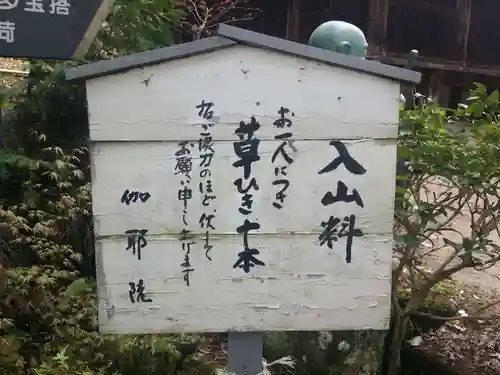 入山料
お一人につき
草ひき十本
なにとぞご協力のほど伏して
お願い申し上げます
伽耶院
宝塔